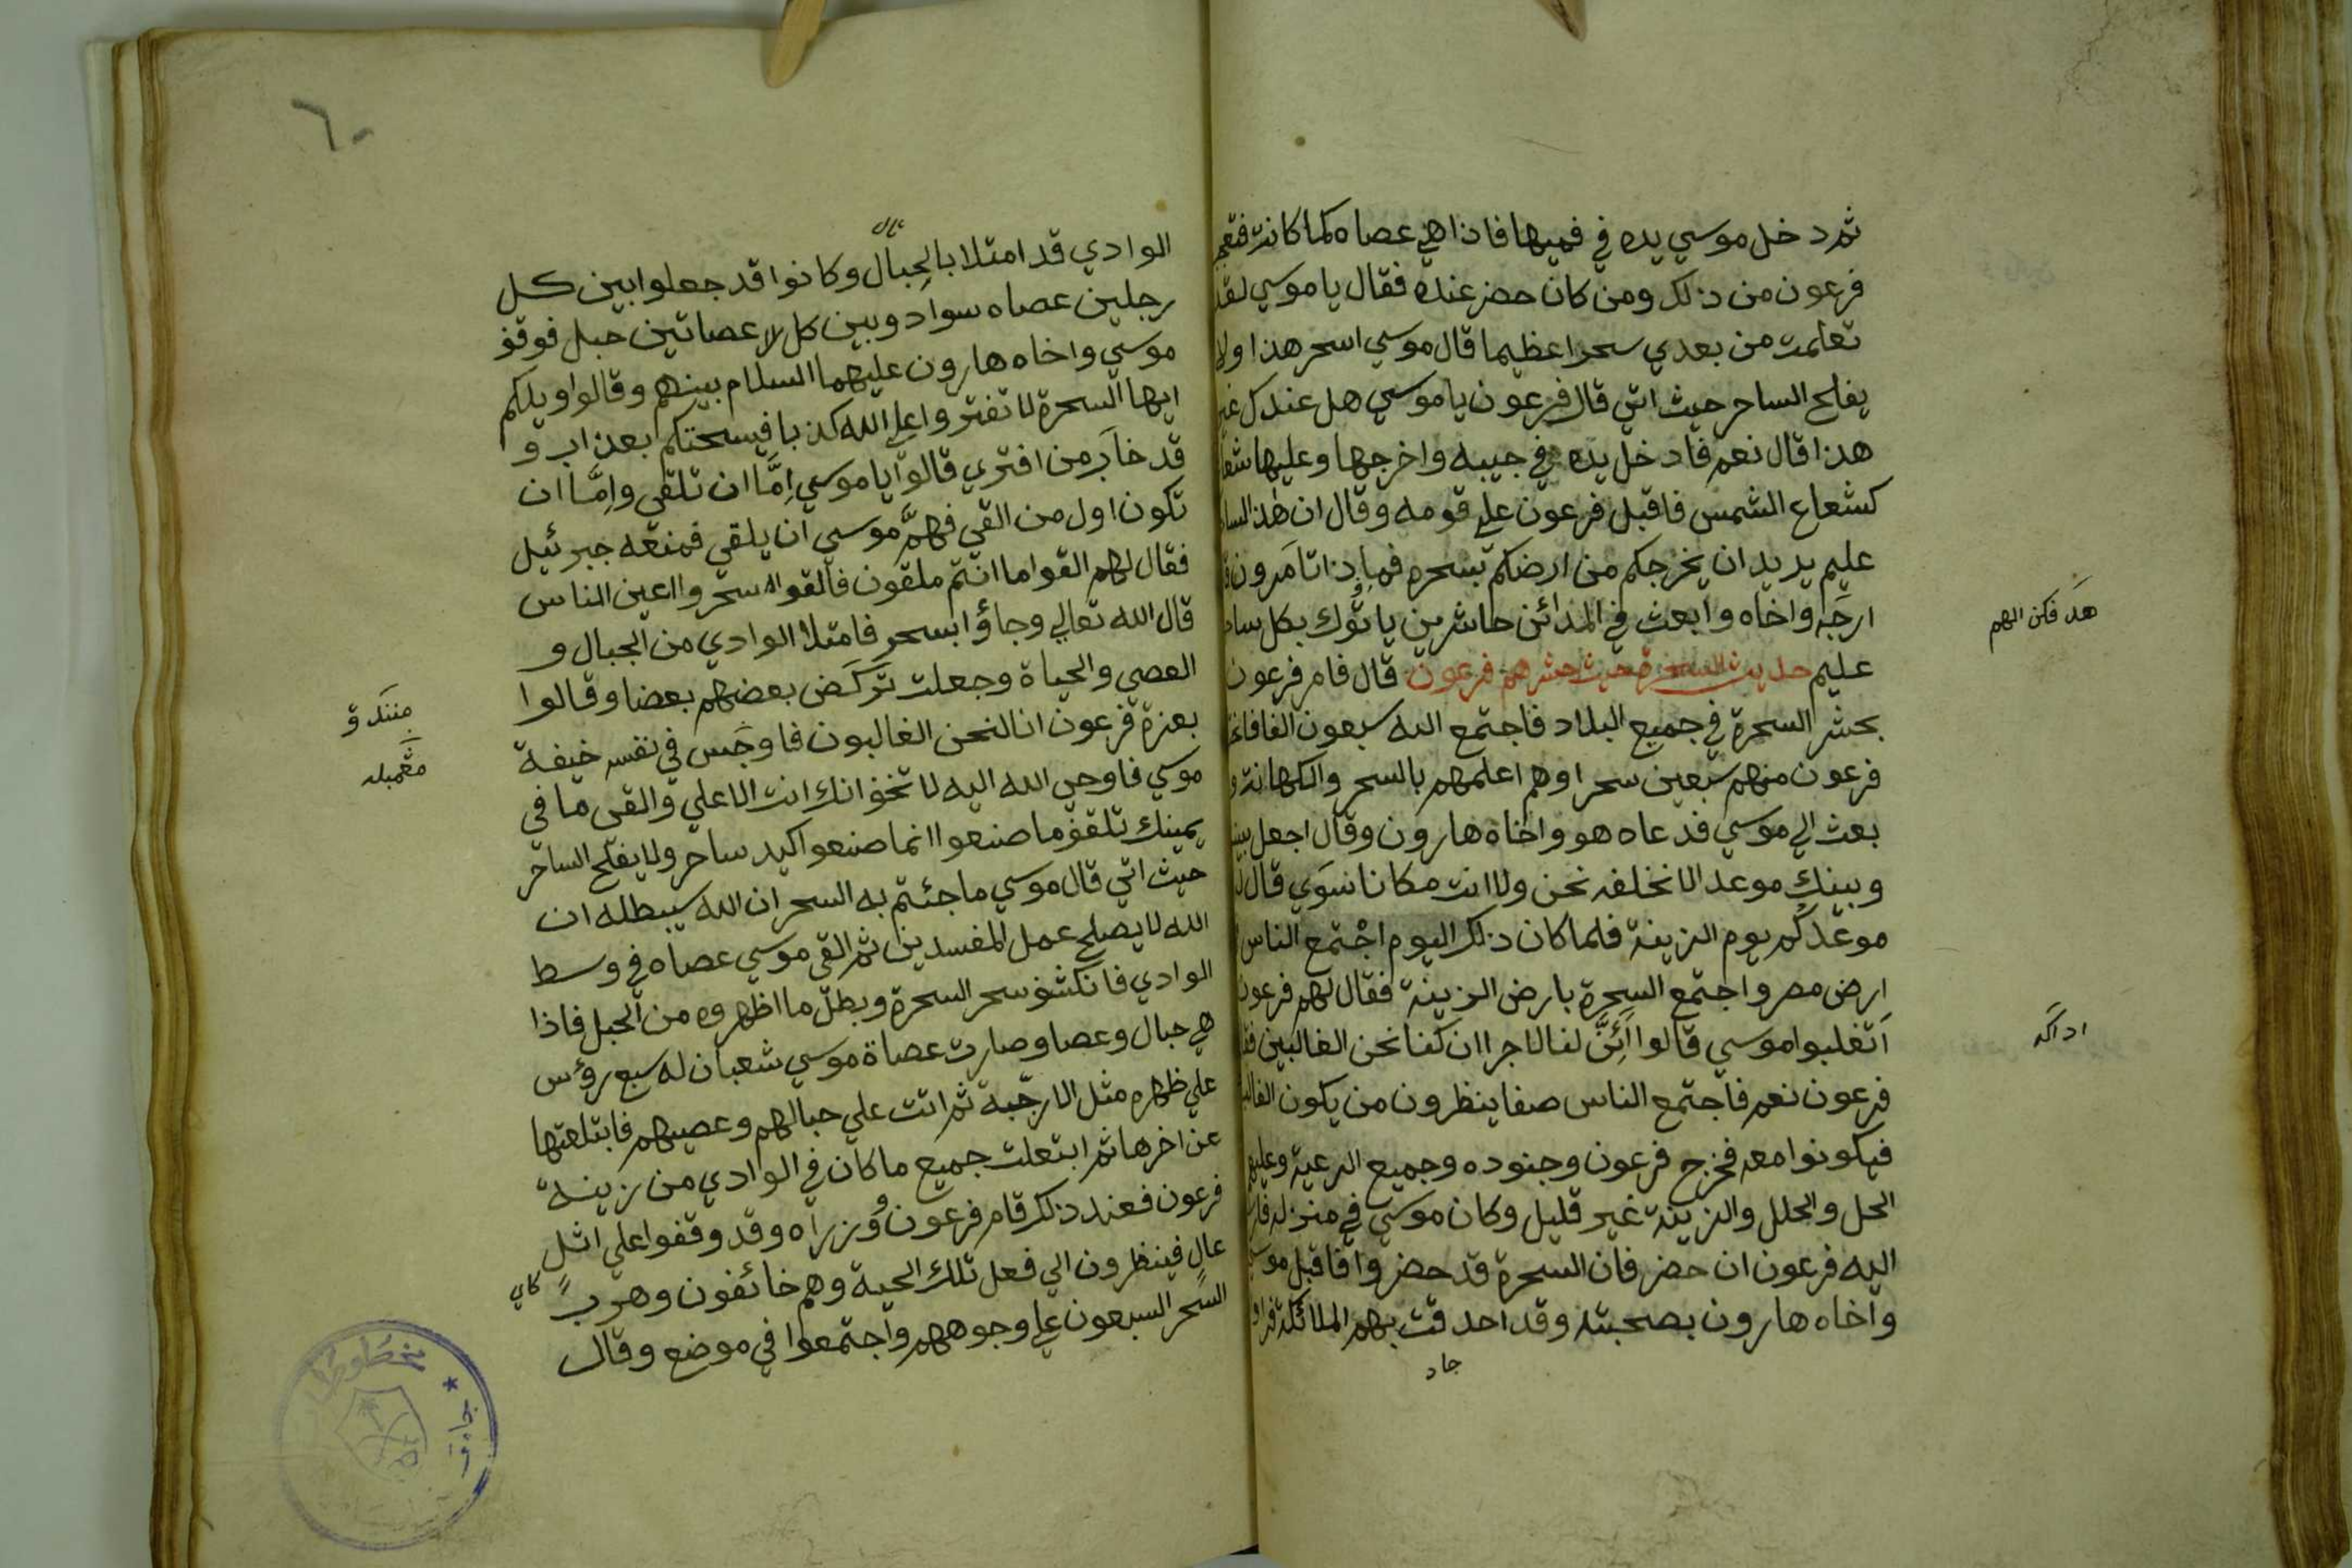 ثم دخل موسي يده في فميها فاذا هي عصاه كما كانت فتعجب
فرعون من ذلك ومن كان حضر عنده فقال يا موسي لقد
تعلمت من بعدي سحرا عظيما قال موسي اسحر هذا ولا
يفلح الساحر حيث اتي قال فرعون يا موسي هل عندك غير
هذا قال نعم فادخل يده في جيبه واخرجها وعليها شعاع
كشعاع الشمس فاقبل فرعون علي قومه وقال ان هذا لساحر
عليم يريد ان يخرجكم من ارضكم بسحره فماذا تامرون
ارجه واخاه وابعث في المدائن حاشرين ياتوك بكل ساحر
عليم حديث السحرة حيث حشرهم فرعون قال فامر فرعون
بحشر السحرة في جميع البلاد فاجتمع اليه سبعون الفا
فرعون منهم سبعين سحرا وهم اعلمهم بالسحر والكهانة و
بعث الي موسي فدعاه هو واخاه هارون وقال اجعل بيننا
وبينك موعد الا نخلفه نحن ولا انت مكانا سوي قال
موعدكم يوم الزينة فلما كان ذلك اليوم اجتمع الناس
ارض مصر واجتمع السحرة بارض الزينة فقال لهم فرعون
اتغلبوا موسي قالوا ائن لنا لاجرا ان كنا نحن الغالبين
فرعون نعم فاجتمع الناس صفا ينظرون من يكون الغالب
فيكونوا معه فخرج فرعون وجنوده وجميع الرعية وعليهم
الحل والحلل والزينة غير قليل وكان موسي في منزله
اليه فرعون ان حضر فان السحرة قد حضروا فاقبل موسي
واخاه هارون بصحبته وقد احدقت بهم الملائكة
جاد
هد فكن الهم
٦٠
الوادي قد امتلا بالحبال وكانوا قد جعلوا بين كل
رجلين عصاه سواد وبين كل لا عصاتين حبل فوقف
موسي واخاه هارون عليهما السلام بينهم وقالوا ويلكم
ايها السحرة لا تفتروا علي الله كذبا فيسحتكم بعذاب و
قد خاب من افتري قالوا يا موسي اما ان تلقي واما ان
تكون اول من القي فهم موسي ان يلقي فمنعه جبرئيل
فقال لهم القوا ما انتم ملقون فالقوا سحروا اعين الناس
قال الله تعالي وجاؤا بسحر فامتلا الوادي من الجبال و
العصي والحياة وجعلت تركض بعضهم بعضا وقالوا
بعزة فرعون انا لنحن الغالبون فاوجس في نفسه خيفة
موسي فاوحي الله اليه لا تخف انك انت الاعلي والقي ما في
يمينك تلقف ما صنعوا انما صنعوا كيد ساحر ولا يفلح الساحر
حيث اتي قال موسي ما جئتم به السحر ان الله سيبطله ان
الله لا يصلح عمل المفسدين ثم القي موسي عصاه في وسط
الوادي فانكشف سحر السحرة وبطل ما اظهروه من الحبل فاذا
هي حبال وعصا وصارت عصاة موسي شعبان له سبع رؤس
علي ظهره مثل الارجبة ثم اتت علي حبالهم وعصيهم فابتلعتها
عن اخرها ثم ابتعلت جميع ما كان في الوادي من زينة
فرعون فعند ذلك قام فرعون وزراه وقد وقفوا علي اتل
عال فينظرون الي فعل تلك الحية وهم خائفون وهرب
السحر السبعون علي وجوههم واجتمعوا في موضع وقال